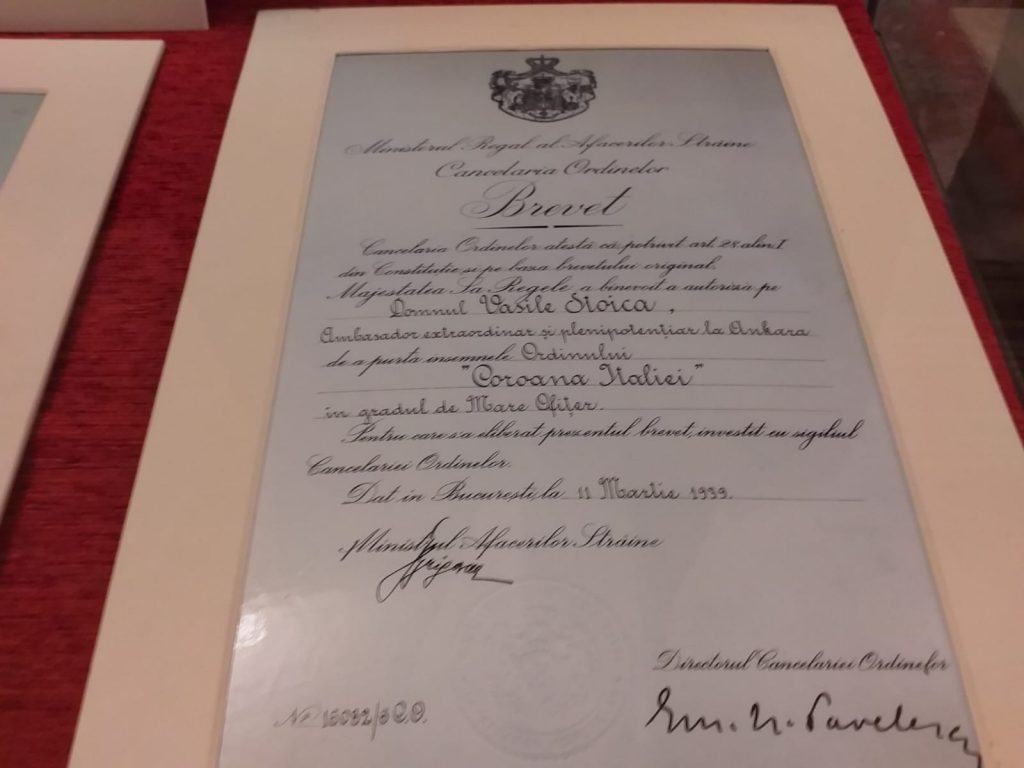 Ministerul Regal al Afacerilor Străine
Cancelaria Ordinelor
Brevet
Cancelaria Ordinelor atestă că, potrivit art. 28 alin. I
din Constituție și pe baza brevetului original,
Majestatea Sa Regele a binevoit a autoriza pe
Domnul Vasile Stoica,
Ambasador extraordinar și plenipotențiar la Ankara
de a purta insemnele Ordinului
"Coroana Italiei"
in gradul de Mare Ofițer.
Pentru care s'a eliberat prezentul brevet, investit cu sigiliul
Cancelariei Ordinelor.
Dat in București, la 11 Martie 1939.
Ministrul Afacerilor Străine
Directorul Cancelariei Ordinelor
Em. N. Pavelescu